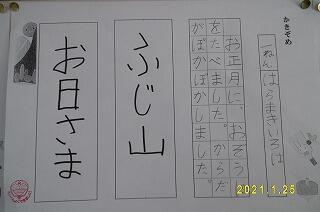 かきぞめ
一ねん はらまきいろは
お正月に、おぞう
をたべました。からだ
がぽかぽかしました。
ふじ山
お日さま
2021.1.25